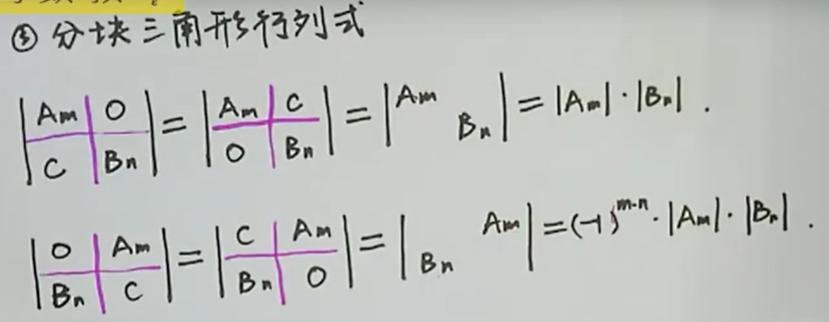 ③ 分块三角形行列式
|Am O; C Bn| = |Am C; O Bn| = |Am Bn| = |Am|·|Bn|.
|O Am; Bn C| = |C Am; Bn O| = |Am; Bn| = (-1)^{m·n}·|Am|·|Bn|.